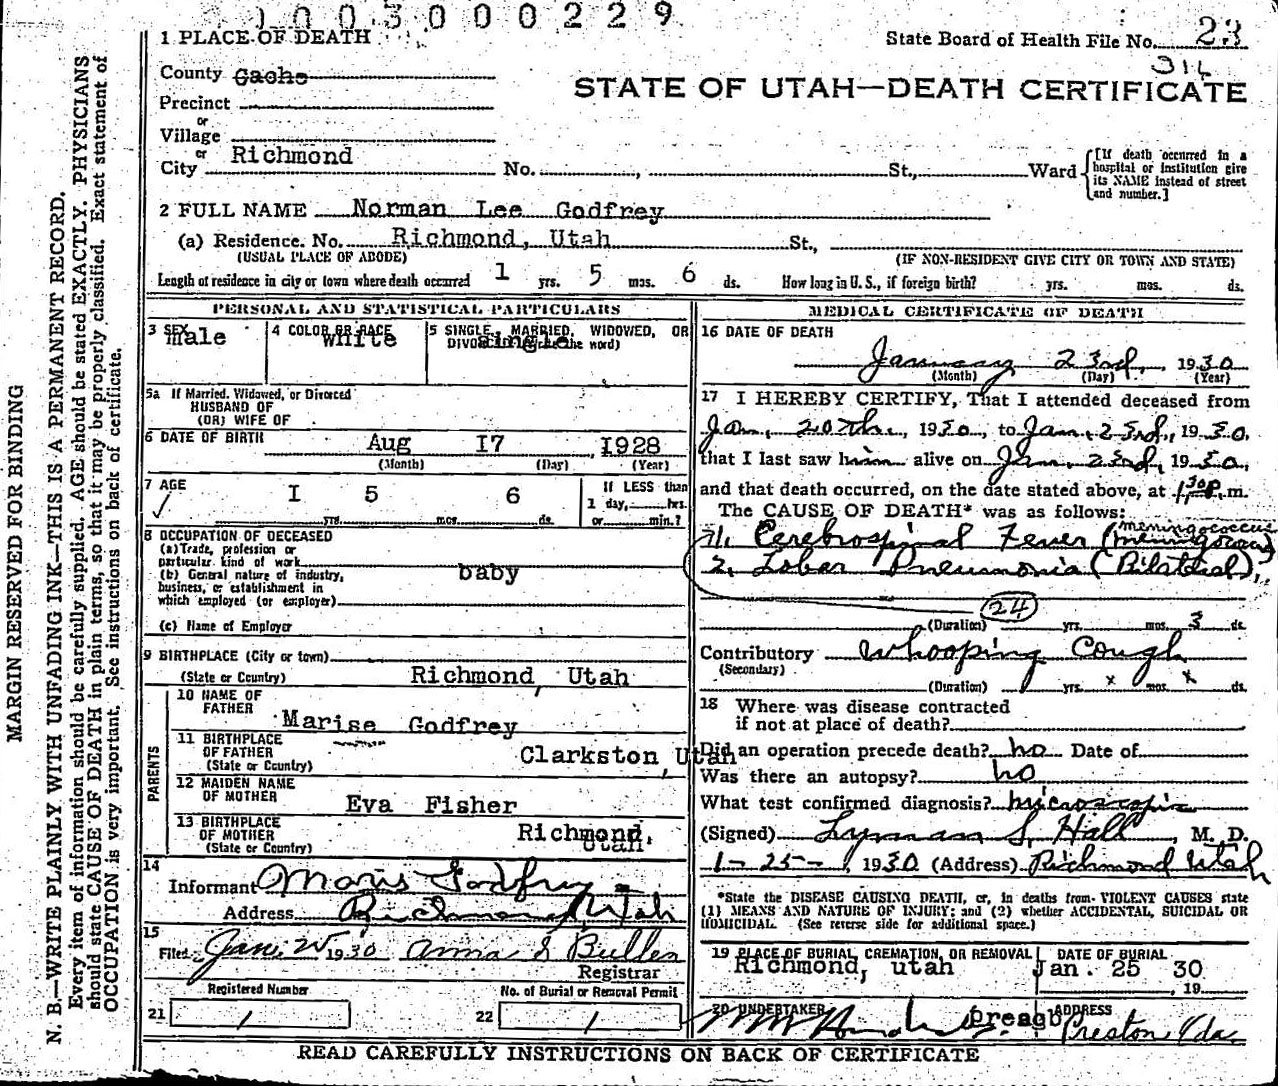 1003000229
1 PLACE OF DEATH
State Board of Health File No. 23
316
County Cache
STATE OF UTAH—DEATH CERTIFICATE
Precinct
or
Village
or
City Richmond No. , St., Ward
[If death occurred in a hospital or institution give its NAME instead of street and number.]
2 FULL NAME Norman Lee Godfrey
(a) Residence. No. Richmond, Utah St.,
(USUAL PLACE OF ABODE) (IF NON-RESIDENT GIVE CITY OR TOWN AND STATE)
Length of residence in city or town where death occurred 1 yrs. 5 mos. 6 ds. How long in U. S., if foreign birth? yrs. mos. ds.
PERSONAL AND STATISTICAL PARTICULARS
3 SEX male
4 COLOR OR RACE white
5 SINGLE, MARRIED, WIDOWED, OR DIVORCED (write the word) single
5a If Married, Widowed, or Divorced
HUSBAND OF
(OR) WIFE OF
6 DATE OF BIRTH Aug 17, 1928
(Month) (Day) (Year)
7 AGE I 5 6
yrs. mos. ds.
If LESS than 1 day, hrs. or min.?
8 OCCUPATION OF DECEASED
(a) Trade, profession or
particular kind of work
(b) General nature of industry, baby
business, or establishment in
which employed (or employer)
(c) Name of Employer
9 BIRTHPLACE (City or town)
(State or Country) Richmond, Utah
PARENTS
10 NAME OF FATHER Marise Godfrey
11 BIRTHPLACE OF FATHER Clarkston, Utah
(State or Country)
12 MAIDEN NAME OF MOTHER Eva Fisher
13 BIRTHPLACE OF MOTHER Richmond, Utah.
(State or Country)
14
Informant Moris Godfrey
Address Richmond, Utah
15
Filed Jan. 1930 Anna S Bullen
Registrar
Registered Number
21 1
No. of Burial or Removal Permit
22 1
MEDICAL CERTIFICATE OF DEATH
16 DATE OF DEATH
January 23rd, 1930
(Month) (Day) (Year)
17 I HEREBY CERTIFY, That I attended deceased from
Jan. 20th, 1930, to Jan. 23rd, 1930,
that I last saw him alive on Jan. 23rd, 1930,
and that death occurred, on the date stated above, at 1:30 P. m.
The CAUSE OF DEATH* was as follows:
meningococcus
1. Cerebrospinal Fever
2. Lobar Pneumonia (Bilateral),
24
(Duration) yrs. mos. 3 ds.
Contributory Whooping Cough
(Secondary)
(Duration) yrs. x mos. x ds.
18 Where was disease contracted
if not at place of death?
Did an operation precede death? no Date of
Was there an autopsy? no
What test confirmed diagnosis? microscopic
(Signed) Lyman S. Hall, M. D.
1-25-, 1930 (Address) Richmond Utah
*State the DISEASE CAUSING DEATH, or, in deaths from VIOLENT CAUSES state
(1) MEANS AND NATURE OF INJURY; and (2) whether ACCIDENTAL, SUICIDAL OR
HOMICIDAL. (See reverse side for additional space.)
19 PLACE OF BURIAL, CREMATION, OR REMOVAL
Richmond, utah
DATE OF BURIAL
Jan. 25 30
, 19
20 UNDERTAKER
ADDRESS
Preston Ida.
READ CAREFULLY INSTRUCTIONS ON BACK OF CERTIFICATE
MARGIN RESERVED FOR BINDING
N. B.—WRITE PLAINLY WITH UNFADING INK—THIS IS A PERMANENT RECORD.
Every item of information should be carefully supplied. AGE should be stated EXACTLY. PHYSICIANS
should state CAUSE OF DEATH in plain terms, so that it may be properly classified. Exact statement of
OCCUPATION is very important. See instructions on back of certificate.